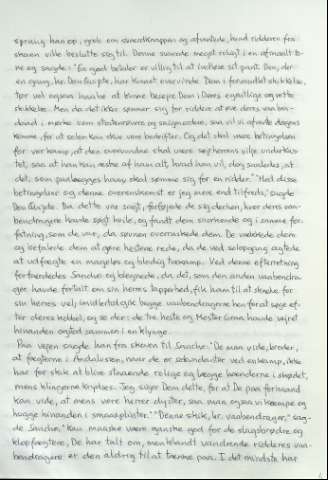 sprang han op, greb om sværdknappen og afventede, hvad ridderen fra
skoven ville beslutte sig til. Denne svarede meget roligt i en afmaalt to-
ne og sagde: "En god betaler er villig til at indløse sit pant. Den, der
en gang, hr. Don Quijote, har kunnet overvinde Dem i forvandlet skikkelse,
tør vel ogsaa haabe at kunne besejre Dem i Deres egentlige og rette
skikkelse. Men da det ikke sømmer sig for riddere at øve deres vaaben-
daad i mørke som stratenrøvere og snigmordere, saa vil vi afvente dagens
komme, for at solen kan skue vore bedrifter. Og det skal være betingelsen
for vor kamp, at den overvundne skal være sejrherrens vilje underkas-
tet, saa at han kan gøre af ham alt, hvad han vil, dog saaledes, at
det, som paalægges ham, skal sømme sig for en ridder." "Med disse
betingelser og denne overenskomst er jeg mere end tilfreds," sagde
Don Quijote. Da dette var sagt, forføjede de sig derhen, hvor deres vaa-
bendragere havde søgt hvile, og fandt dem snorkende og i samme for-
fatning, som de var, da søvnen overraskede dem. De vækkede dem
og befalede dem at gøre hestene rede, da de ved solopgang agtede
at udfægte en mageløs og blodig tvekamp. Ved denne efterretning
forfærdedes Sancho og blegnede, da det, som den anden vaabendra-
ger havde fortalt om sin herres tapperhed, fik ham til at skælve for
sin herres vel; imidlertid gik begge vaabendragerne hen for at søge ef-
ter deres kobbel, og se der: de tre heste og Mester Graa havde vejret
hinanden og stod sammen i en klynge.
Paa vejen sagde han fra skoven til Sancho: "De maa vide, broder,
at fægterne i Andalusien, naar de er sekundanter ved en kamp, ikke
har for skik at blive staaende rolige og lægge hænderne i skødet,
mens klingerne krydses. Jeg siger Dem dette, for at De paa forhaand
kan vide, at mens vore herrer dyster, saa maa ogsaa vi kæmpe og
hugge hinanden i smaasplinter." "Denne skik, hr. vaabendrager," sag-
de Sancho, "kan maaske være ganske god for de slagsbrødre og
klopfægtere, De har talt om, men blandt vandrende ridderes vaa-
bendragere er den aldrig til at tænke paa. I det mindste har